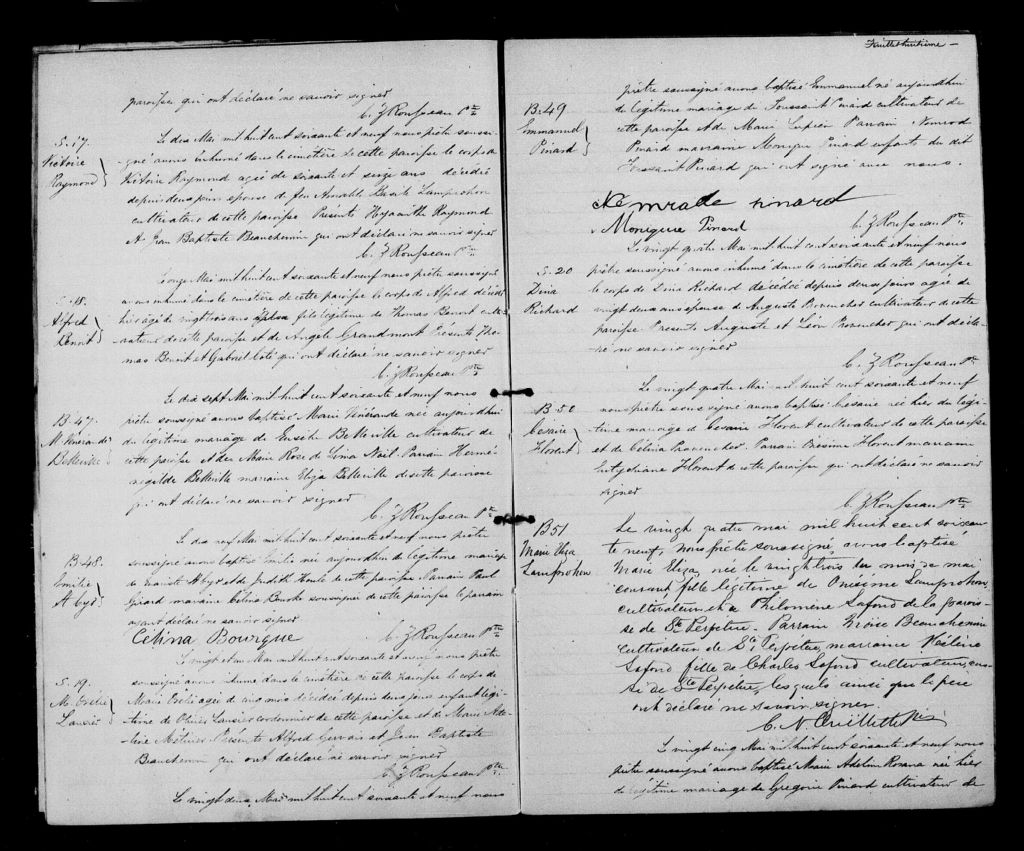 paroisse qui ont déclaré ne savoir signer
C. Z Rousseau Ptre
S. 17.
Victoire
Raymond
Le dix Mai mil huit cent soixante et neuf nous prêtre soussi-
-gné avons inhumé dans le cimetière de cette paroisse le corps de
Victoire Raymond agée de soixante et seize ans décédée
depuis deux jours épouse de feu Amable Basile Lamprohon
cultivateur de cette paroisse Présents Hyacinthe Raymond
et Jean Baptiste Beauchemin qui ont déclaré ne savoir signer
C. Z Rousseau Ptre
S. 18.
Alfred
Benoit
Le onze Mai mil huit cent soixante et neuf nous prêtre soussigné
avons inhumé dans le cimetière de cette paroisse le corps de Alfred décédé
hier agé de vingt trois ans fils légitime de Thomas Benoit culti-
vateur de cette paroisse et de Angèle Grandmont Présents Tho-
mas Benoit et Gabriel Côté qui ont déclaré ne savoir signer
C. Z Rousseau Ptre
B. 47.
M. Vénérande
Belleville
Le dix sept Mai mil huit cent soixante et neuf nous
prêtre soussigné avons baptisé Marie Vénérande née aujourd'hui
du légitime mariage de Eusèbe Belleville cultivateur de
cette paroisse et de Marie Rose de Lima Noël Parrain Hermé-
négilde Belleville marraine Eliza Belleville de cette paroisse
qui ont déclaré ne savoir signer
C. Z Rousseau Ptre
B. 48.
Emilie
Le dix neuf Mai mil huit cent soixante et neuf nous prêtre
soussigné avons baptisé Emilie née aujourd'hui de légitime mariage
de Evariste et de Judith Houle de cette paroisse Parrain Paul
Girard marraine Célina Bourke soussignée de cette paroisse le parrain
ayant déclaré ne savoir signer
Celina Bourque
C. Z Rousseau Ptre
S. 19.
M. Exélie
Lausier
Le vingt et un Mai mil huit cent soixante et neuf nous prêtre
soussigné avons inhumé dans le cimetière de cette paroisse le corps de
Marie Exélie agée de cinq mois décédée depuis deux jours enfant légi-
time de Olivier Lausier cordonnier de cette paroisse et de Marie Ade-
-line Métivier Présents Alfred Gervais et Jean Baptiste
Beauchemin qui ont déclaré ne savoir signer
C. Z Rousseau Ptre
Le vingt deux Mai mil huit cent soixante et neuf nous
Feuillet huitième
B. 49
Emmanuel
Pinard
prêtre soussigné avons baptisé Emmanuel né aujourd'hui
de légitime mariage de Toussaint Pinard cultivateur de
cette paroisse et de Marie Lupien Parrain Nemrod
Pinard marraine Monique Pinard enfants du dit
Toussaint Pinard qui ont signé avec nous.
Ne mrade Pinard
Monique Pinard
C. Z Rousseau Ptre
S. 20
Dina
Richard
Le vingt quatre Mai mil huit cent soixante et neuf nous
prêtre soussigné avons inhumé dans le cimetière de cette paroisse
le corps de Dina Richard décédée depuis deux jours agée de
vingt deux ans épouse de Auguste Provencher cultivateur de cette
paroisse Présents Auguste et Léon Provencher qui ont décla-
-ré ne savoir signer
C. Z Rousseau Ptre
B. 50
Césaire
Florent
Le vingt quatre Mai mil huit cent soixante et neuf
nous prêtre soussigné avons baptisé Césaire né hier du légi-
time mariage de Césaire Florent cultivateur de cette paroisse
et de Célina Provencher. Parrain Onésime Florent marraine
Eutychiane Florent de cette paroisse qui ont déclaré ne savoir
signer
C. Z Rousseau Ptre
B 51
Marie Eliza
Lamprohon
Le vingt quatre mai mil huit cent soixan-
te neuf, nous prêtre soussigné avons baptisé
Marie Eliza, née le vingt trois du mois de mai
courant, fille légitime de Onésime Lamprohon
cultivateur, et de Philomène Lafond de la parois-
se de Ste Perpétue. Parrain Moïse Beauchemin
cultivateur de Ste Perpétue, marraine
Lafond fille de Charles Lafond cultivateur, aus-
si de Ste Perpétue, lesquels ainsi que le père
ont déclaré ne savoir signer.
C. N Ouillette
Le vingt cinq Mai mil huit cent soixante et neuf nous
prêtre soussigné avons baptisé Marie Adeline Rosana née hier
de légitime mariage de Grégoire Pinard cultivateur de